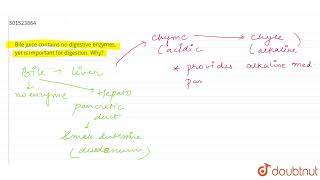 501523664
Bile juice contains no digestive enzymes,
yet is important for digestion. Why?
chyme → chyle
(acidic (alkaline
Bile → liver
* provides alkaline med
pan
no enzyme Hepato
pancreatic
duct
Small intestine
(duodenum)
doubtnut